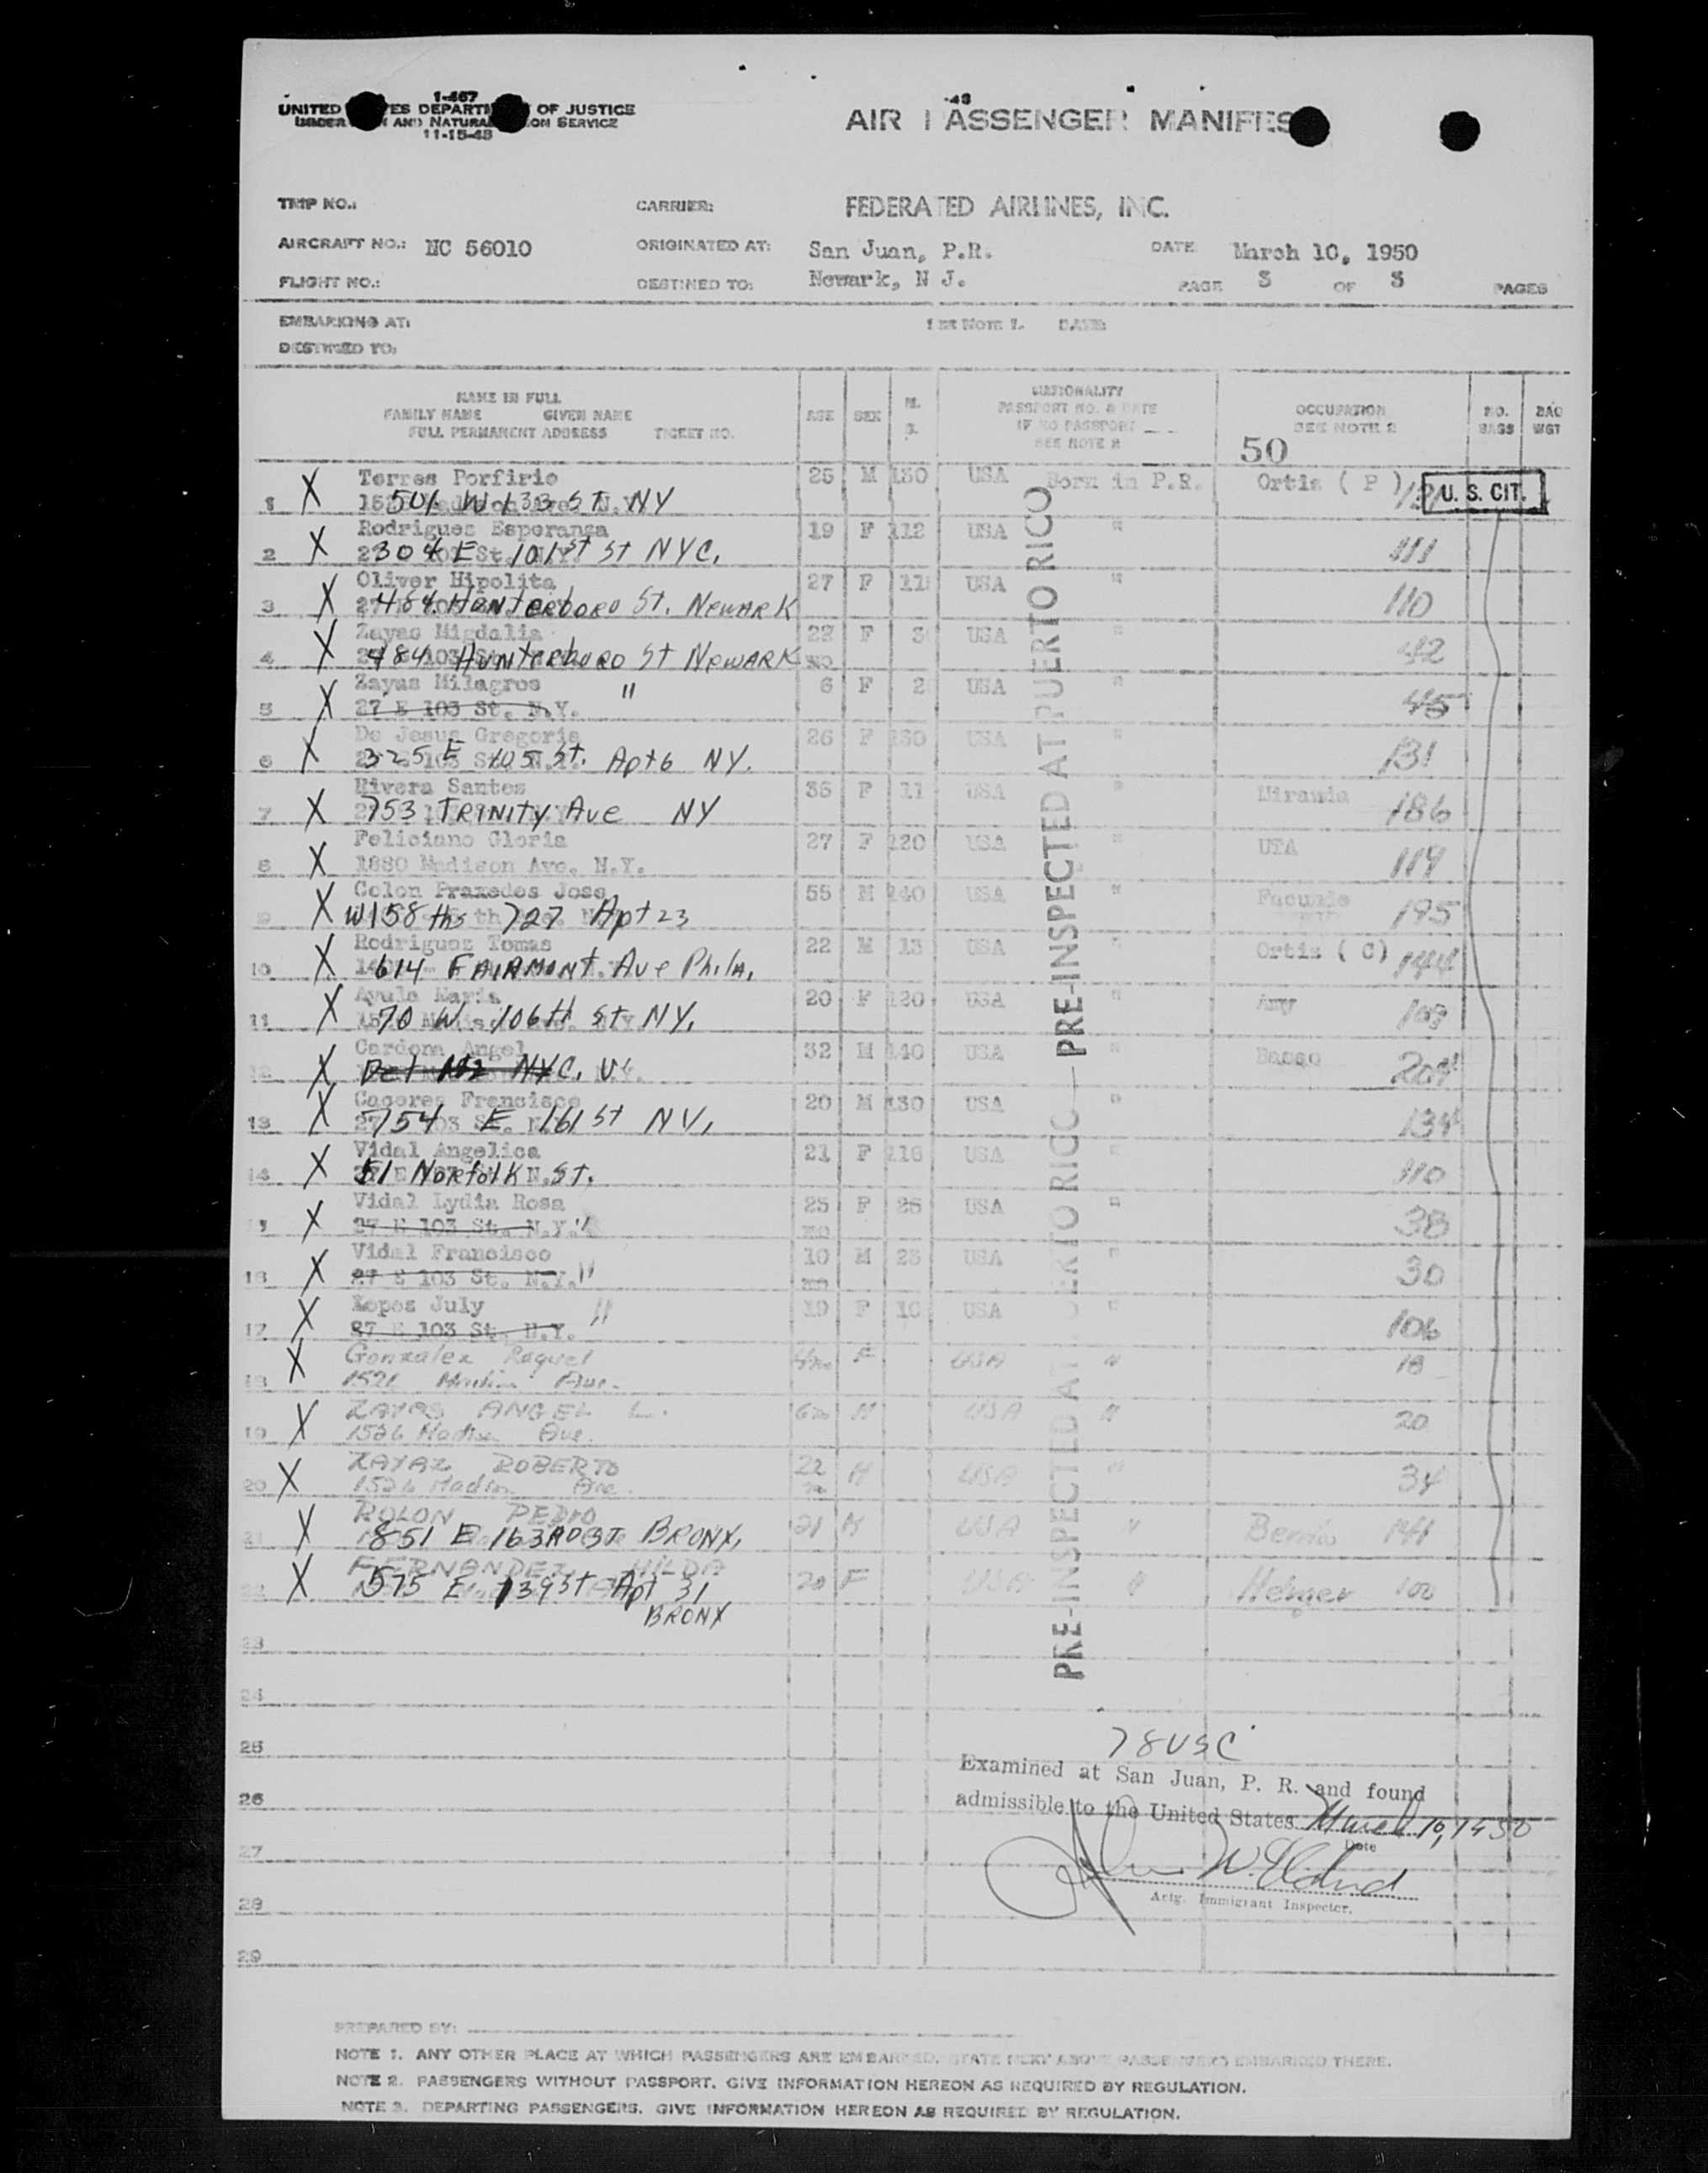 1-467
UNITED ES DEPART OF JUSTICE
AND NATURA ON SERVICE
11-15-43
-43
AIR PASSENGER MANIFES
TRIP NO.: CARRIER: FEDERATED AIRLINES, INC.
AIRCRAFT NO.: NC 56010 ORIGINATED AT: San Juan, P.R. DATE March 10, 1950
FLIGHT NO.: DESTINED TO: Newark, N J. PAGE 3 OF 3 PAGES
EMBARKING AT: DATE:
DESTINED TO:
NAME IN FULL NATIONALITY
FAMILY NAME GIVEN NAME AGE SEX PASSPORT NO. & DATE OCCUPATION NO. BAG
FULL PERMANENT ADDRESS TICKET NO. IF NO PASSPORT SEE NOTE 2 BAGS WGT
SEE NOTE 2
50
Torres Porfirio 25 M 130 USA Born in P.R. Ortis ( P ) 121 U. S. CIT.
1 X 501 W 133 ST. NY
Rodriguez Esperanza 19 F 112 USA " 111
2 X 304 E 101st St NYC.
Oliver Hipolita 27 F 11 USA " 110
3 X 484 Hunterboro St. Newark
Zayas Migdalia 22 F 3 USA " 42
4 X 484 Hunterboro St Newark
Zayas Milagros " 6 F 2 USA " 45
5 X 27 E 103 St. N.Y.
De Jesus Gregoria 26 F 130 USA " 131
6 X 325 E 105 St. Apt 6 NY.
Rivera Santos 36 F 11 USA " Miranda 186
7 X 753 Trinity Ave NY
Feliciano Gloria 27 F 120 USA " UTA 119
8 X 1880 Madison Ave. N.Y.
Colon Praxedes Jose 55 M 140 USA " Facundo 195
9 X W 158 ths 727 Apt 23
Rodriguez Tomas 22 M 13 USA " Ortis ( C ) 144
10 X 614 Fairmont Ave Phila,
Ayala Maria 20 F 120 USA " 109
11 X 70 W 106th St NY.
Cardona Angel 32 M 140 USA " Basso 204
12 X NYC.
Caceres Francisco 20 M 130 USA " 134
13 X 754 E 161 St NY,
Vidal Angelica 21 F 116 USA " 110
14 X 51 Norfolk St.
Vidal Lydia Rosa 25 F 25 USA 38
X 27 E 103 St. N.Y. "
Vidal Francisco 10 M 23 USA " 30
16 X 27 E 103 St. N.Y. "
Lopez July " 19 F 10 USA " 106
17 X 27 E 103 St. N.Y.
Gonzalez Raquel F USA " 18
18 X 1526 Madison Ave.
ZAYAS ANGEL L. 6m M USA " 20
19 X 1526 Madison Ave.
ZAYAZ ROBERTO 22 M USA " 34
20 X 1526 Madison Ave.
ROLON PEDRO 21 M USA " 141
21 X 851 E 163 RD ST BRONX,
FERNANDEZ HILDA 20 F USA " 100
22 X 575 E 139 St Apt 31
BRONX
23
24
25
26
27
28
29
PRE-INSPECTED AT PUERTO RICO
PRE-INSPECTED AT PUERTO RICO
78 USC
Examined at San Juan, P. R. and found
admissible to the United States March 10, 1950
Date
Actg. Immigrant Inspector.
PREPARED BY:
NOTE 1. ANY OTHER PLACE AT WHICH PASSENGERS ARE EMBARKED. STATE NEXT ABOVE PASSENGERS EMBARKED THERE.
NOTE 2. PASSENGERS WITHOUT PASSPORT. GIVE INFORMATION HEREON AS REQUIRED BY REGULATION.
NOTE 3. DEPARTING PASSENGERS. GIVE INFORMATION HEREON AS REQUIRED BY REGULATION.